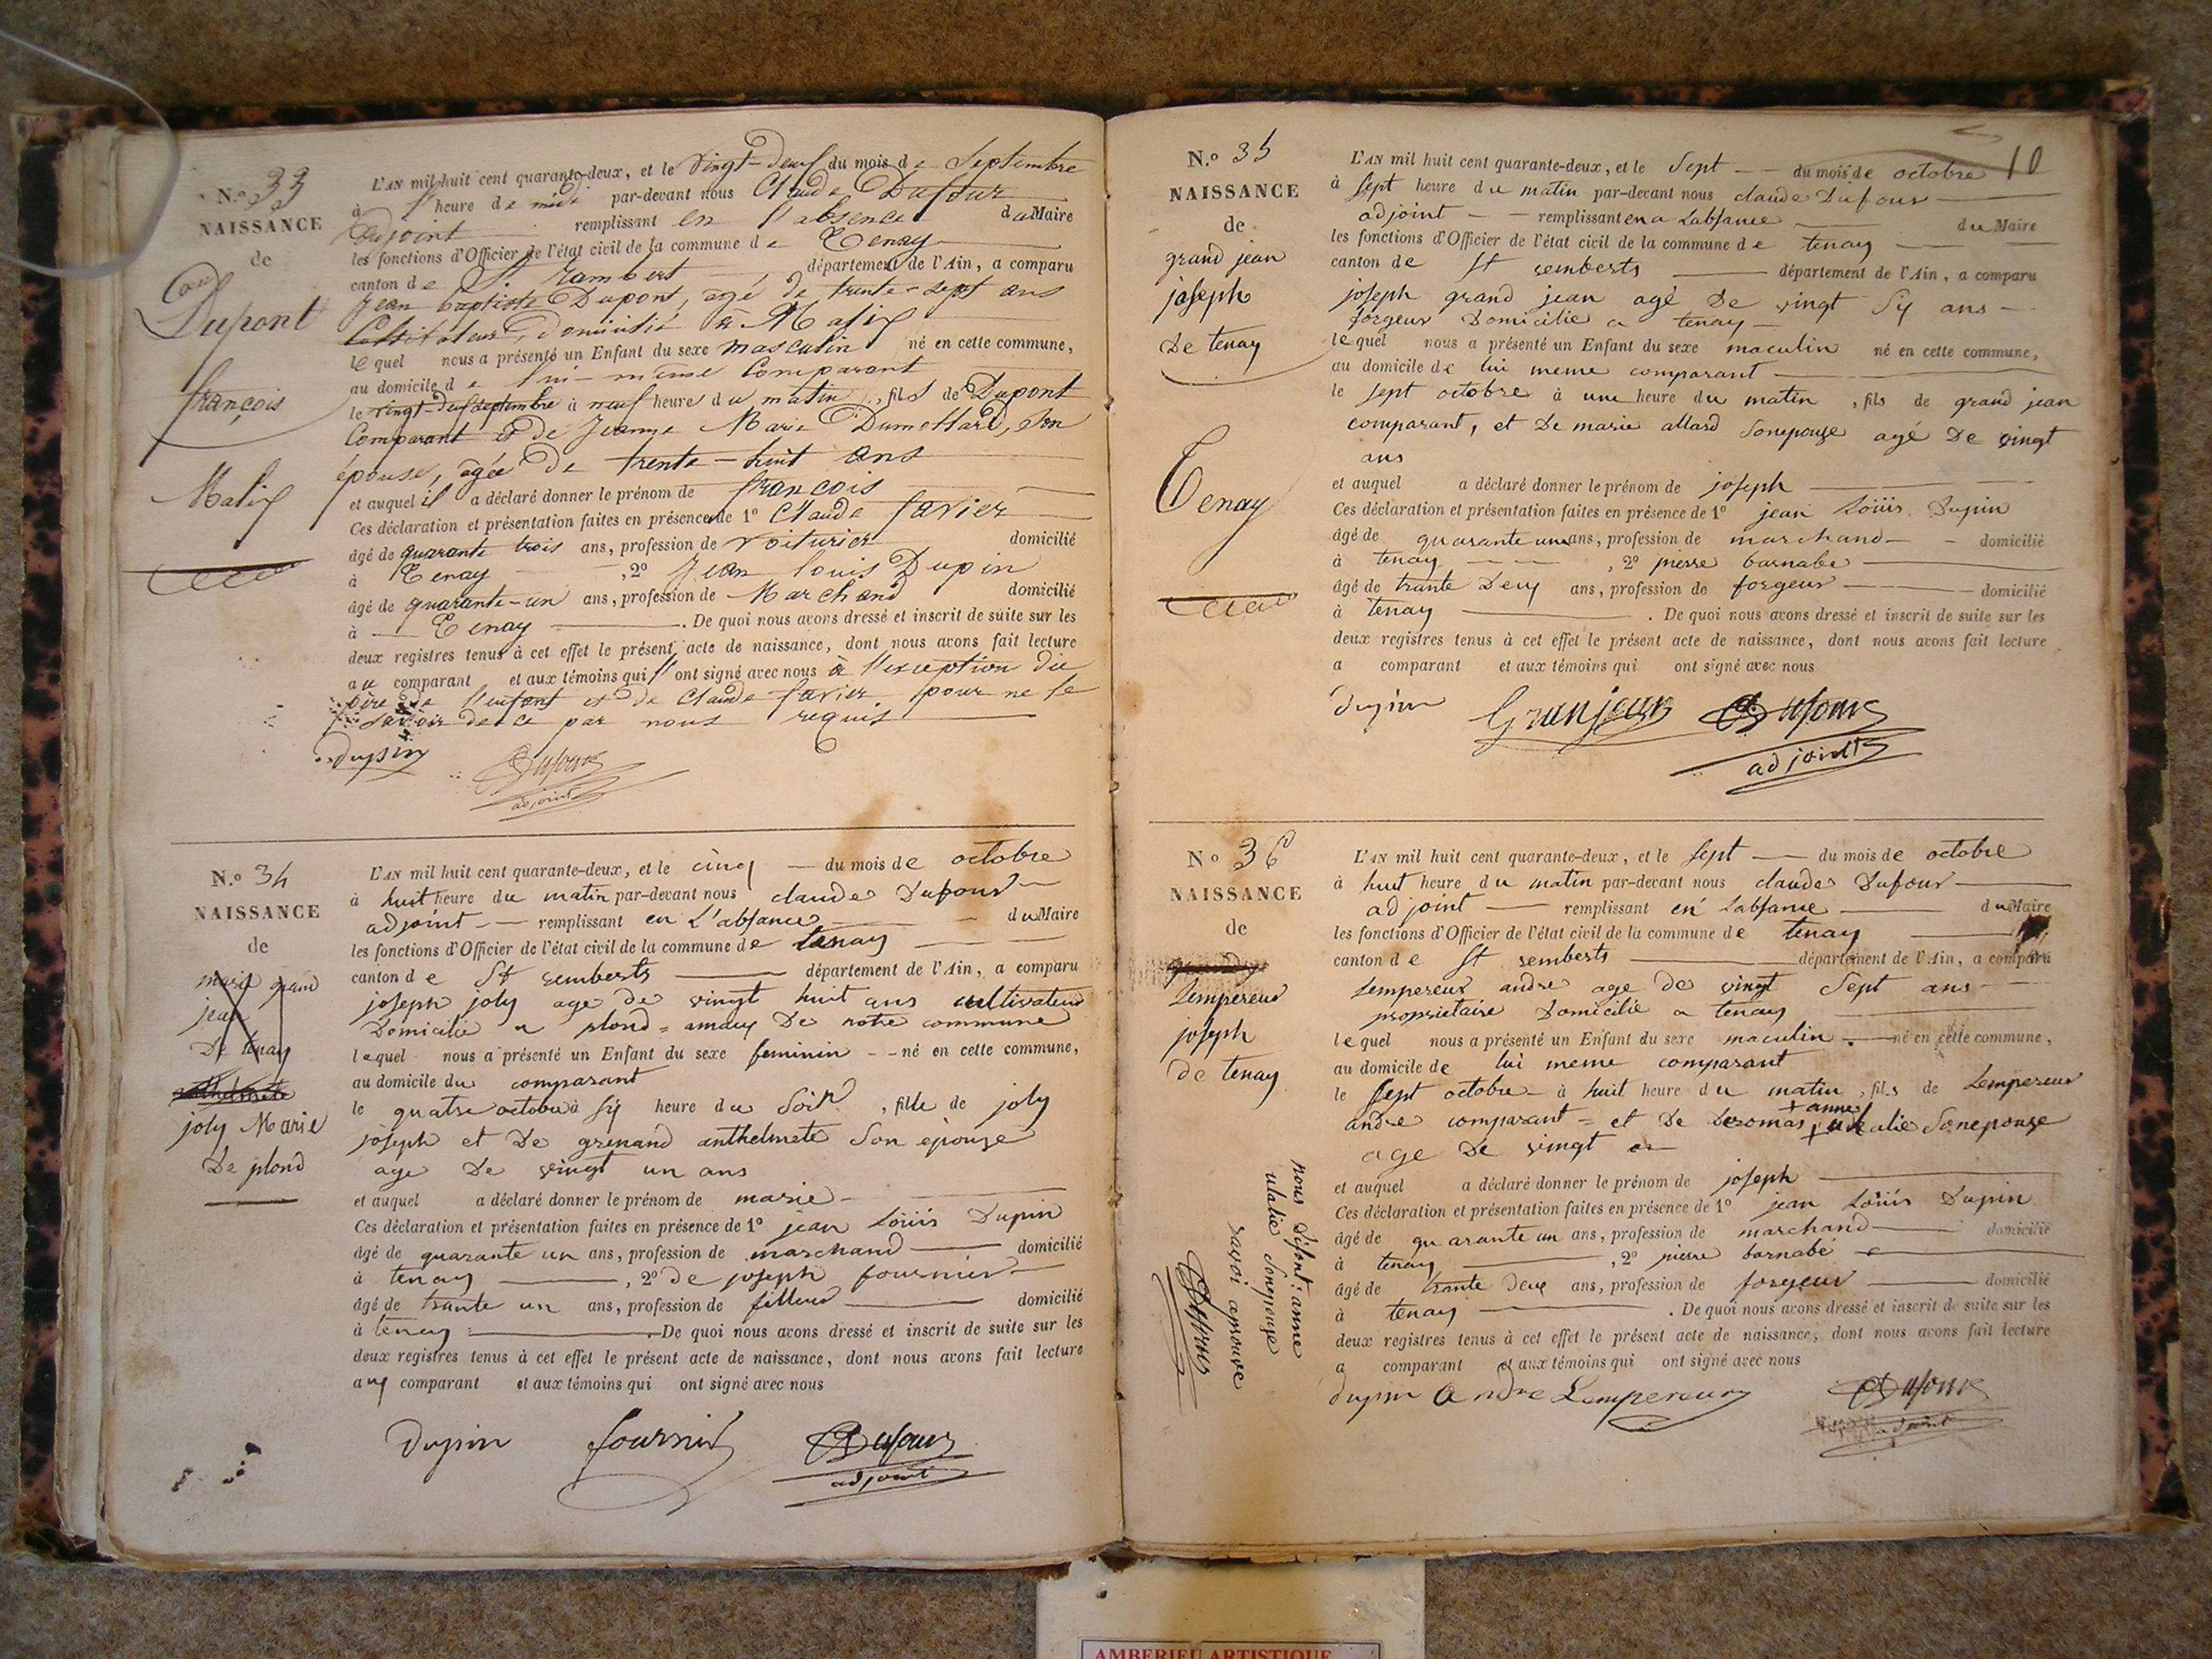 N.º 33
NAISSANCE
de
Dupont
françois
Malix
L'AN mil huit cent quarante-deux, et le vingt-deux du mois de Septembre
à l' heure de midi par-devant nous Claude Dufour
adjoint remplissant en l'absence du Maire
les fonctions d'Officier de l'état civil de la commune de Tenay
canton de St. Rambert département de l'Ain, a comparu
Jean baptiste Dupont, agé de trente-sept ans
Cultivateur, domicilié à Malix
lequel nous a présenté un Enfant du sexe masculin né en cette commune,
au domicile de lui-même Comparant
le vingt-deux septembre à neuf heure du matin, fils de Dupont
Comparant et de Jeanne Marie Dumollard, son
épouse, agée de trente-huit ans
et auquel il a déclaré donner le prénom de françois
Ces déclaration et présentation faites en présence de 1º Claude favier
âgé de quarante trois ans, profession de voiturier domicilié
à Tenay, 2º Jean louis Dupin
âgé de quarante-un ans, profession de Marchand domicilié
à Tenay. De quoi nous avons dressé et inscrit de suite sur les
deux registres tenus à cet effet le présent acte de naissance, dont nous avons fait lecture
au comparant et aux témoins qui l'ont signé avec nous à l'exception du
père de l'enfant et de Claude favier pour ne le
savoir de ce par nous requis
Dupin Dufour
adjoint
N.º 34
NAISSANCE
de
marie grand
jean
De tenay
joly Marie
De plond
L'AN mil huit cent quarante-deux, et le cinq du mois de octobre
à huit heure du matin par-devant nous claude Dufour
adjoint remplissant en L'absance du Maire
les fonctions d'Officier de l'état civil de la commune de tenay
canton de St remberts département de l'Ain, a comparu
joseph joly age de vingt huit ans cultivateur
Domicilie a plond=amaux De notre commune
lequel nous a présenté un Enfant du sexe feminin né en cette commune,
au domicile du comparant
le quatre octobre à siy heure du Soir, fille de joly
joseph et De grenand anthelmete Son epouze
age De vingt un ans
et auquel a déclaré donner le prénom de marie
Ces déclaration et présentation faites en présence de 1º jean Loüis Dupin
âgé de quarante un ans, profession de marchand domicilié
à tenay, 2º de joseph fournier
âgé de trante un ans, profession de filleur domicilié
à tenay. De quoi nous avons dressé et inscrit de suite sur les
deux registres tenus à cet effet le présent acte de naissance, dont nous avons fait lecture
auy comparant et aux témoins qui ont signé avec nous
Dupin fournier Dufour
adjoint
10
N.º 35
NAISSANCE
de
grand jean
joseph
De tenay
Tenay
L'AN mil huit cent quarante-deux, et le Sept du mois de octobre
à Sept heure du matin par-devant nous claude Dufour
adjoint remplissant en a Labsance du Maire
les fonctions d'Officier de l'état civil de la commune de tenay
canton de St remberts département de l'Ain, a comparu
joseph grand jean agé De vingt Siy ans
forgeur Domicilie a tenay
lequel nous a présenté un Enfant du sexe maculin né en cette commune,
au domicile de lui meme comparant
le Sept octobre à une heure du matin, fils de grand jean
comparant, et De marie allard Sonepouze agé De vingt
ans
et auquel a déclaré donner le prénom de joseph
Ces déclaration et présentation faites en présence de 1º jean Loüis Dupin
âgé de quarante un ans, profession de marchand domicilié
à tenay, 2º pierre barnabe
âgé de trante Deuy ans, profession de forgeur domicilié
à tenay. De quoi nous avons dressé et inscrit de suite sur les
deux registres tenus à cet effet le présent acte de naissance, dont nous avons fait lecture
a comparant et aux témoins qui ont signé avec nous
Dupin Granjean Dufour
adjoint
Nº 36
NAISSANCE
de
Lempereur
joseph
de tenay
L'AN mil huit cent quarante-deux, et le Sept du mois de octobre
à huit heure du matin par-devant nous claude Dufour
adjoint remplissant en Labsance du Maire
les fonctions d'Officier de l'état civil de la commune de tenay
canton de St remberts département de l'Ain, a comparu
Lempereur andre age de vingt Sept ans
propriétaire Domicilie a tenay
lequel nous a présenté un Enfant du sexe maculin né en cette commune,
au domicile de lui meme comparant
le Sept octobre à huit heure du matin, fils de Lempereur
+ anne
andre comparant = et De Deromas ulalie Sonepouze
age De vingt
et auquel a déclaré donner le prénom de joseph
Ces déclaration et présentation faites en présence de 1º jean Loüis Dupin
âgé de quarante un ans, profession de marchand domicilié
à tenay, 2º pierre barnabé
âgé de trante Deuy ans, profession de forgeur domicilié
à tenay. De quoi nous avons dressé et inscrit de suite sur les
deux registres tenus à cet effet le présent acte de naissance, dont nous avons fait lecture
a comparant et aux témoins qui ont signé avec nous
Dupin Andre Lempereur Dufour
adjoint
nous Disont: anne
ulalie Sonepouze
aprouve
Dufour
AMBERIEU ARTISTIQUE